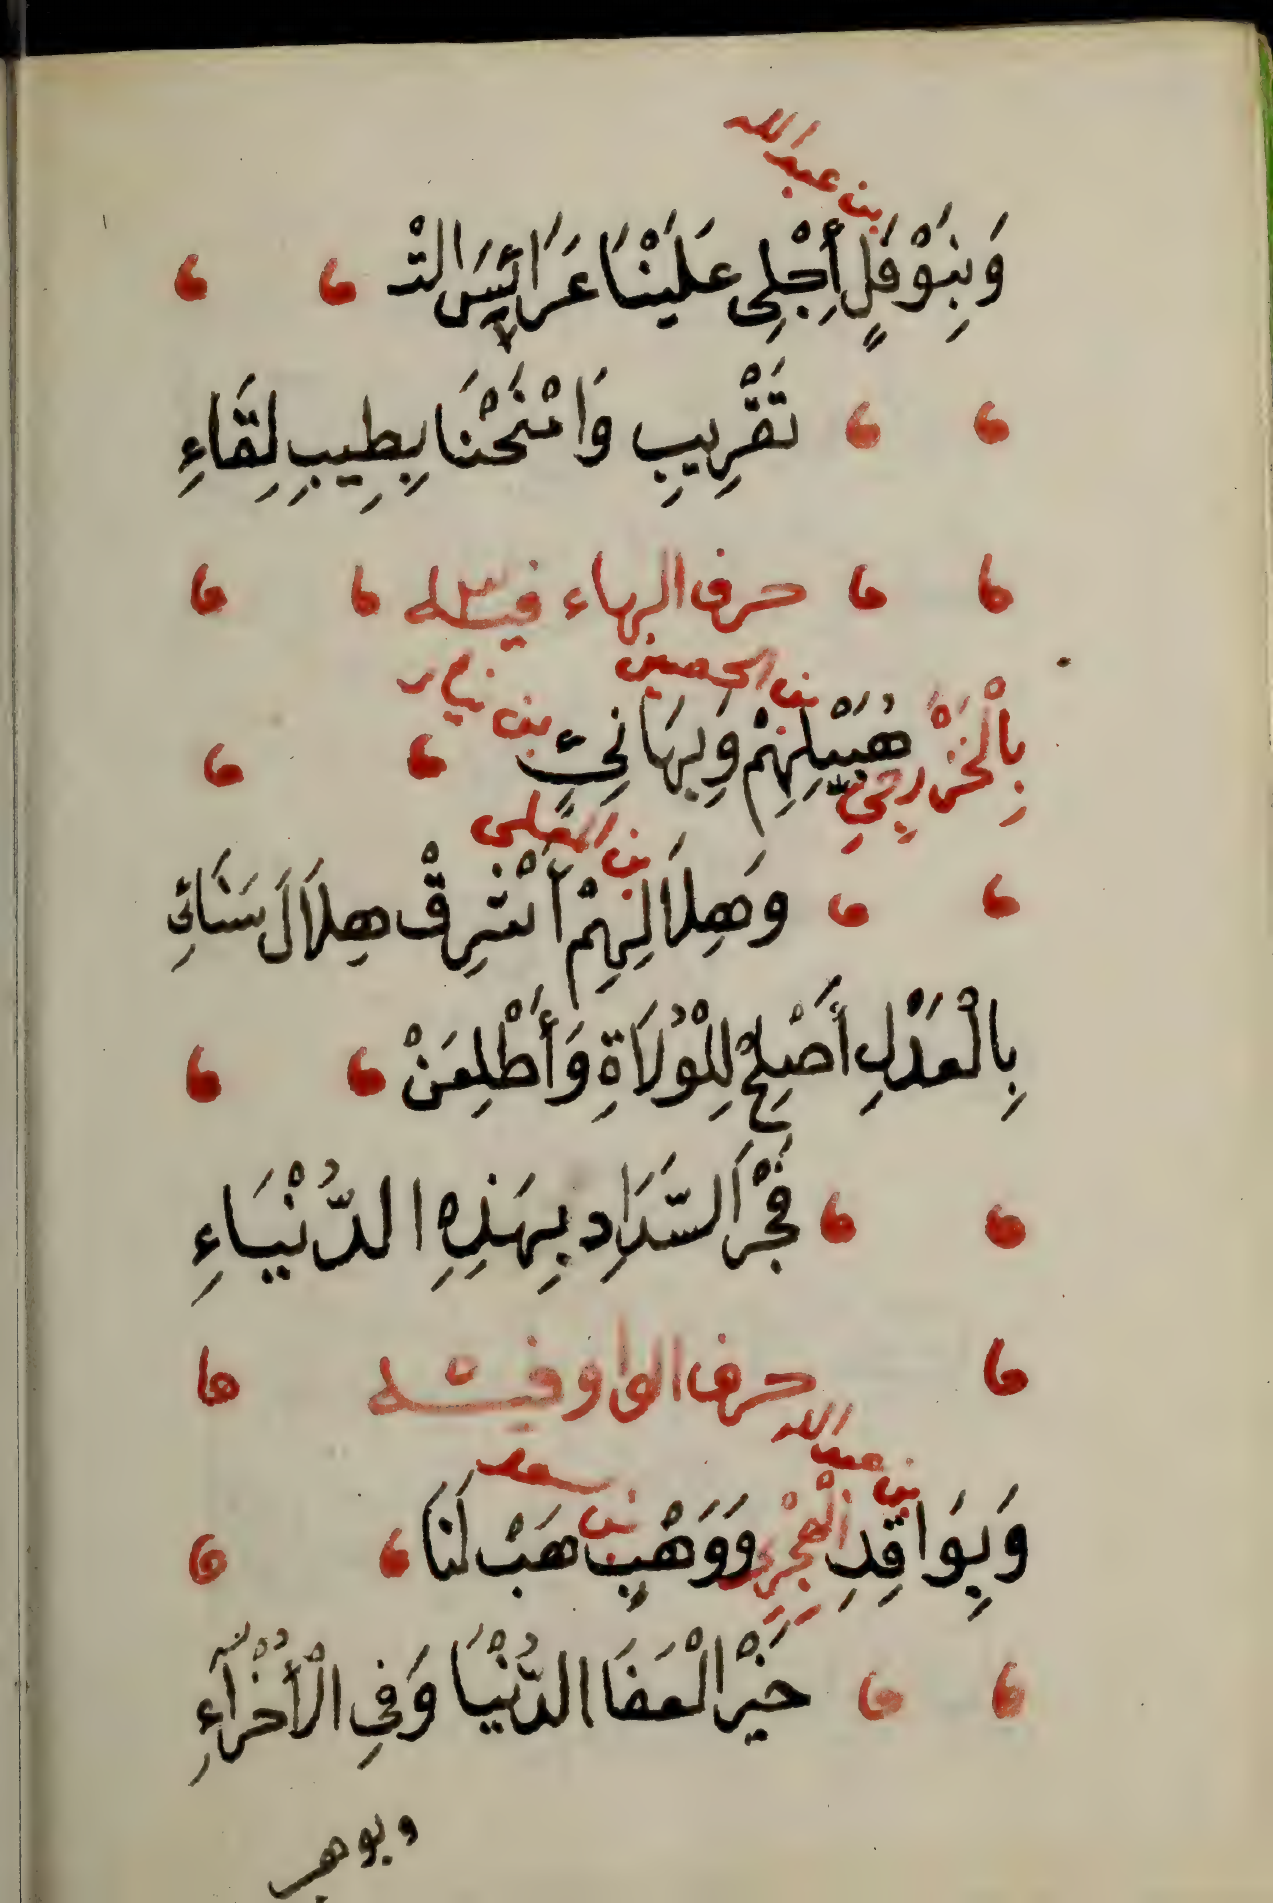 بن عبد الله
وَبِنَوْفَلٍ أَجْلِى عَلَيْنَا عَرَائِسَ التْ
تَقْرِيبِ وَامْنَحْنَا بِطِيبِ لِقَاءِ
حرف الهاء فيه
بن الحصين بن نيار
بِالْخَزْرَجِيِّ هُبَيْلِهِمْ وَبِهَانِئٍ
بن المعلى
وَهِلَالِهِمْ أَشْرِقْ هِلَالَ سَنَائِ
بِالْعَدْلِ أَصْلِحْ لِلْوُلَاةِ وَأَطْلِعَنْ
فَجْرَ السَّدَادِ بِهَذِهِ الدُّنْيَاءِ
حرف الواو فيه
بن عبد الله بن سعد
وَبِوَاقِدِ وَوَهْبٍ هَبْ لَنَا
خَيْرَ الْعَفَا الدُّنْيَا وَفِى الْأُخْرَآءِ
وبوهب